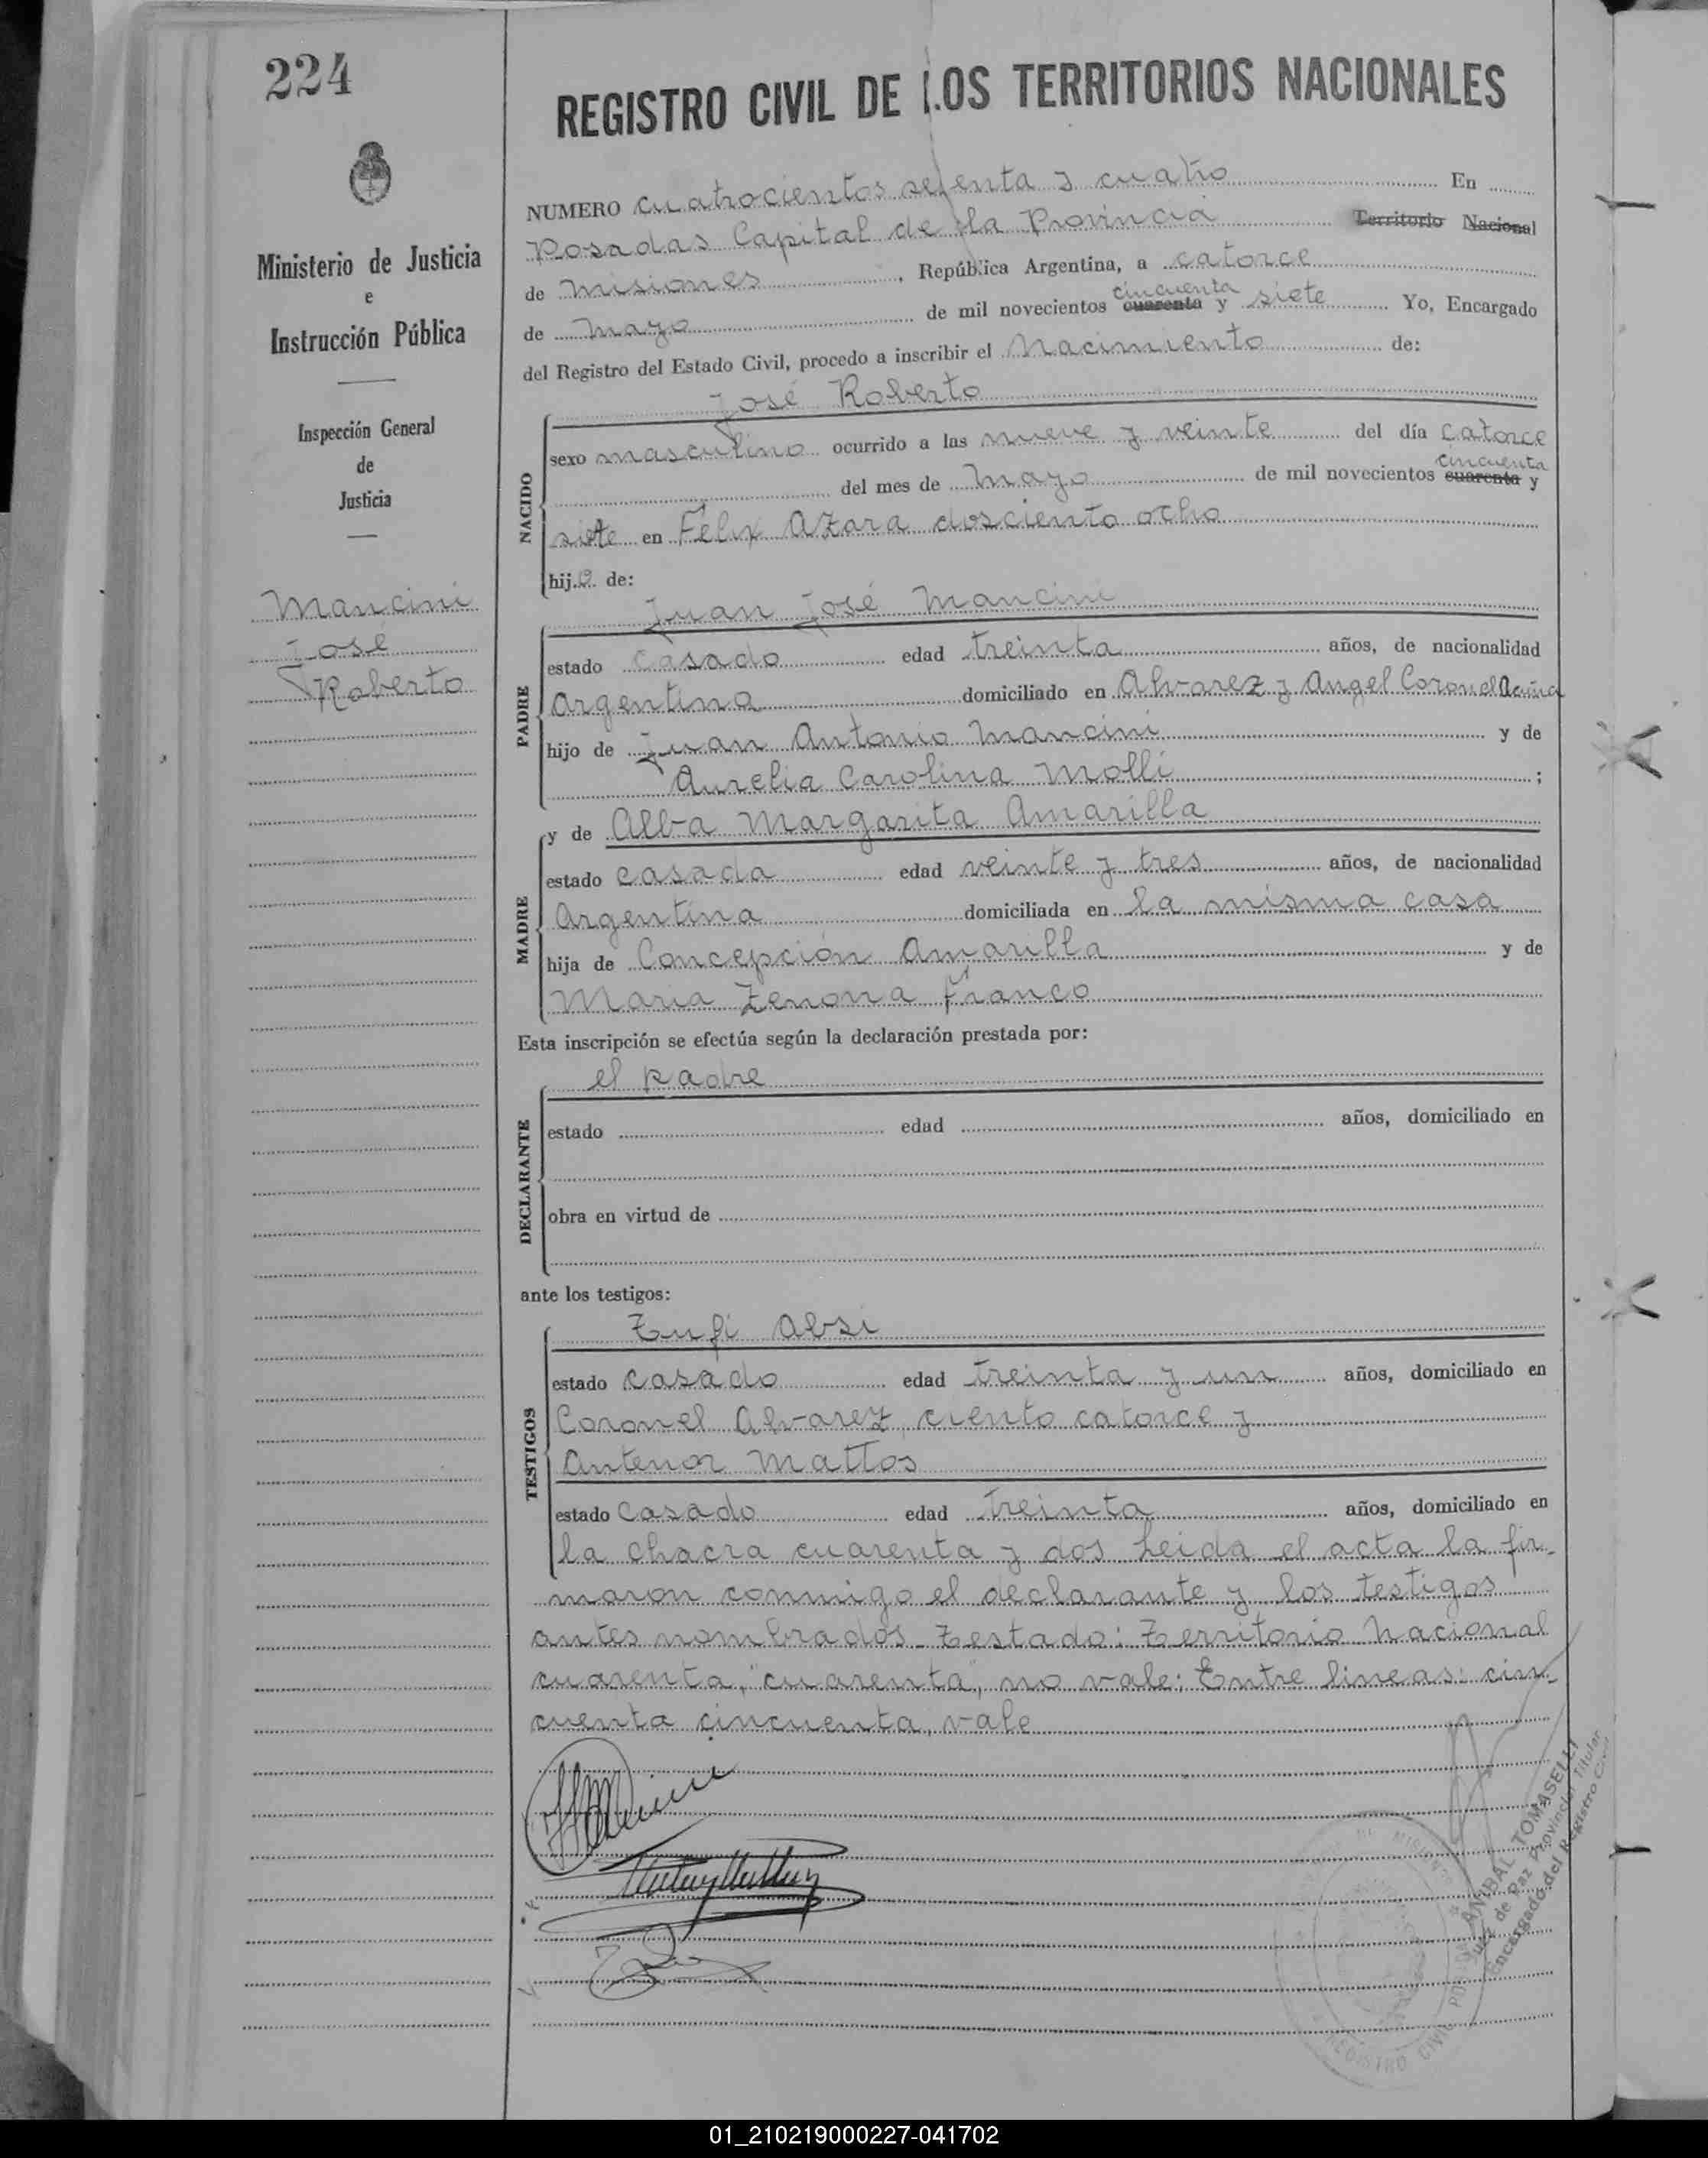 224
REGISTRO CIVIL DE LOS TERRITORIOS NACIONALES
Ministerio de Justicia
e
Instrucción Pública
Inspección General
de
Justicia
Mancini
José
Roberto
NUMERO cuatrocientos setenta y cuatro En
Posadas Capital de la Provincia Territorio Nacional
de Misiones, República Argentina, a catorce
cincuenta
de Mayo de mil novecientos cuarenta y siete Yo, Encargado
del Registro del Estado Civil, procedo a inscribir el Nacimiento de:
José Roberto
NACIDO
sexo masculino ocurrido a las nueve y veinte del día catorce
cincuenta
del mes de Mayo de mil novecientos cuarenta y
siete en Félix Azara dosciento ocho
hijo de:
Juan José Mancini
PADRE
estado casado edad treinta años, de nacionalidad
Argentina domiciliado en Alvarez y Angel Coronel Acuña
hijo de Juan Antonio Mancini y de
Aurelia Carolina Molli ;
y de Alba Margarita Amarilla
MADRE
estado casada edad veinte y tres años, de nacionalidad
Argentina domiciliada en la misma casa
hija de Concepción Amarilla y de
Maria Zenona Franco
Esta inscripción se efectúa según la declaración prestada por:
el padre
DECLARANTE
estado edad años, domiciliado en
obra en virtud de
ante los testigos:
Tufi Absi
TESTIGOS
estado casado edad treinta y un años, domiciliado en
Coronel Alvarez, ciento catorce y
Antenor Mattos
estado casado edad treinta años, domiciliado en
la chacra cuarenta y dos Leida el acta la fir-
maron conmigo el declarante y los testigos
antes nombrados. Testado: Territorio Nacional
cuarenta, "cuarenta", no vale; Entre lineas: cin-
cuenta cincuenta, vale
ANIBAL TOMASELLI
Juez de Paz Provincial Titular
Encargado del Registro Civil
REGISTRO CIVIL
01_210219000227-041702